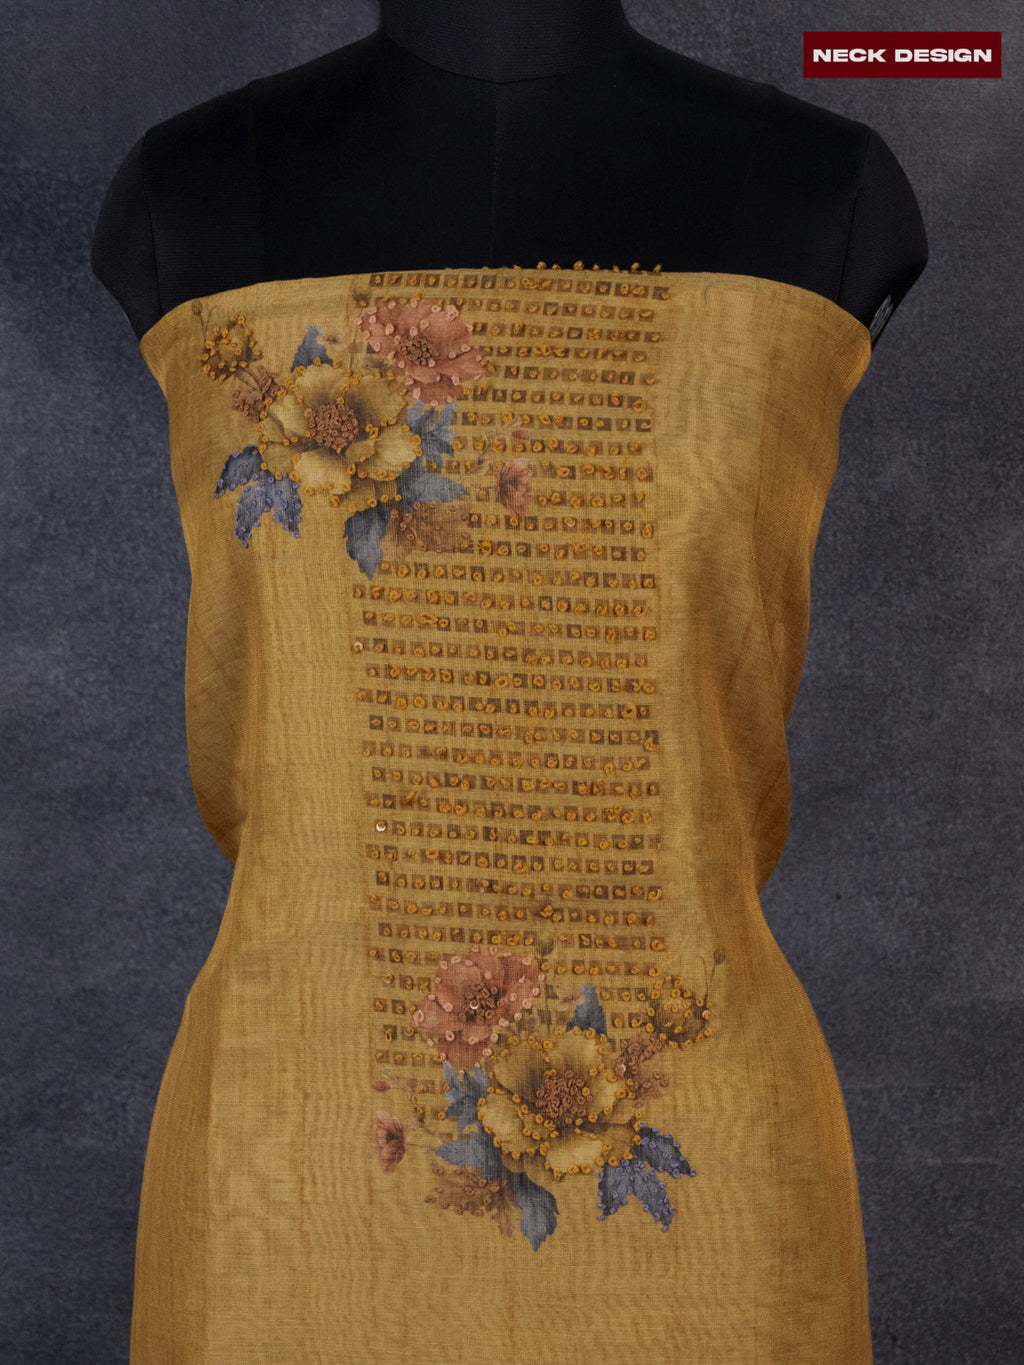 NECK DESIGN